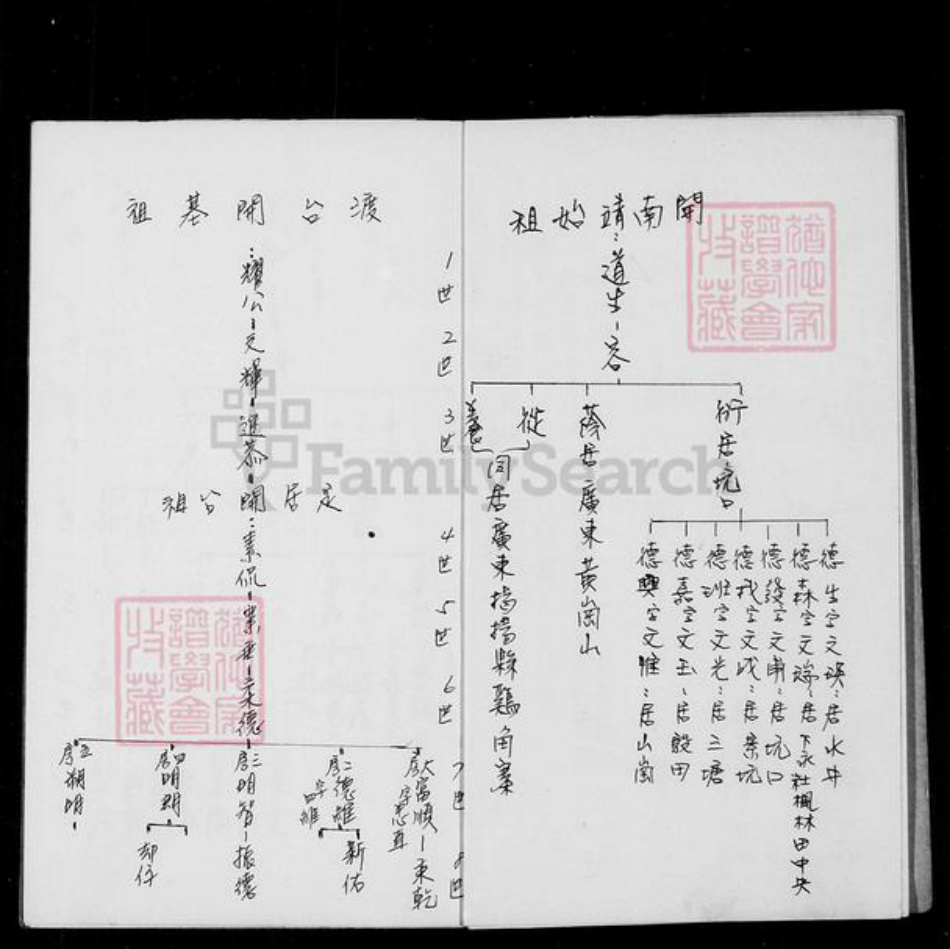 開南靖始祖
道生
容
衍居坑口
蔭居廣東黃崗山
從
養
同居廣東揭揚縣鷄角寨
德生字文瑛:居水井
德森字文瑞:居下永社楓林田中央
德發字文甫:居坑口
德我字文成:居寨坑
德班字文光:居三塘
德嘉字文玉:居殿田
德興字文惟:居山崗
渡台開基祖
1世
2世
3世
4世
5世
6世
7世
8世
耀公
元輝
進恭
開台祖
居足
素侃
業垂
柔德
大房富順
字忠直
東乾
二房德雄
新佑
三房明智
振德
四房明朝
却仔
五房朔明
猶他家譜學會收藏
猶他家譜學會收藏
FamilySearch